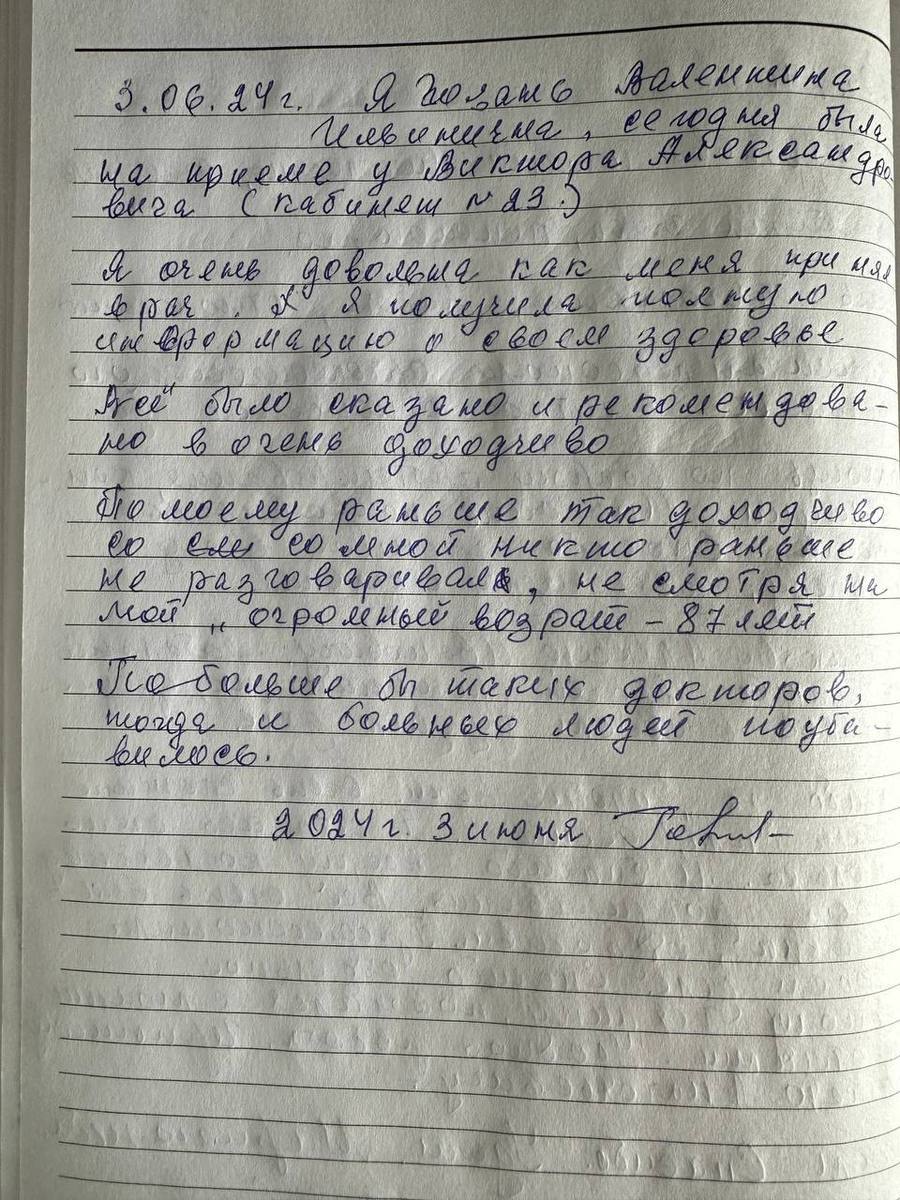 3.06.24г. Я Валентина
Ильинична, сегодня была
на приеме у Виктора Александро-
вича (кабинет № 23.)
Я очень довольна как меня принял
врач. Я получила полную
информацию о своем здоровье
Всё было сказано и рекомендова-
но в очень доходчиво
По моему раньше так доходчиво
со со мной никто раньше
не разговаривал, не смотря на
мой „огромный возраст – 87 лет
Побольше бы таких докторов,
тогда и больных людей поуба-
вилось.
2024г. 3 июня